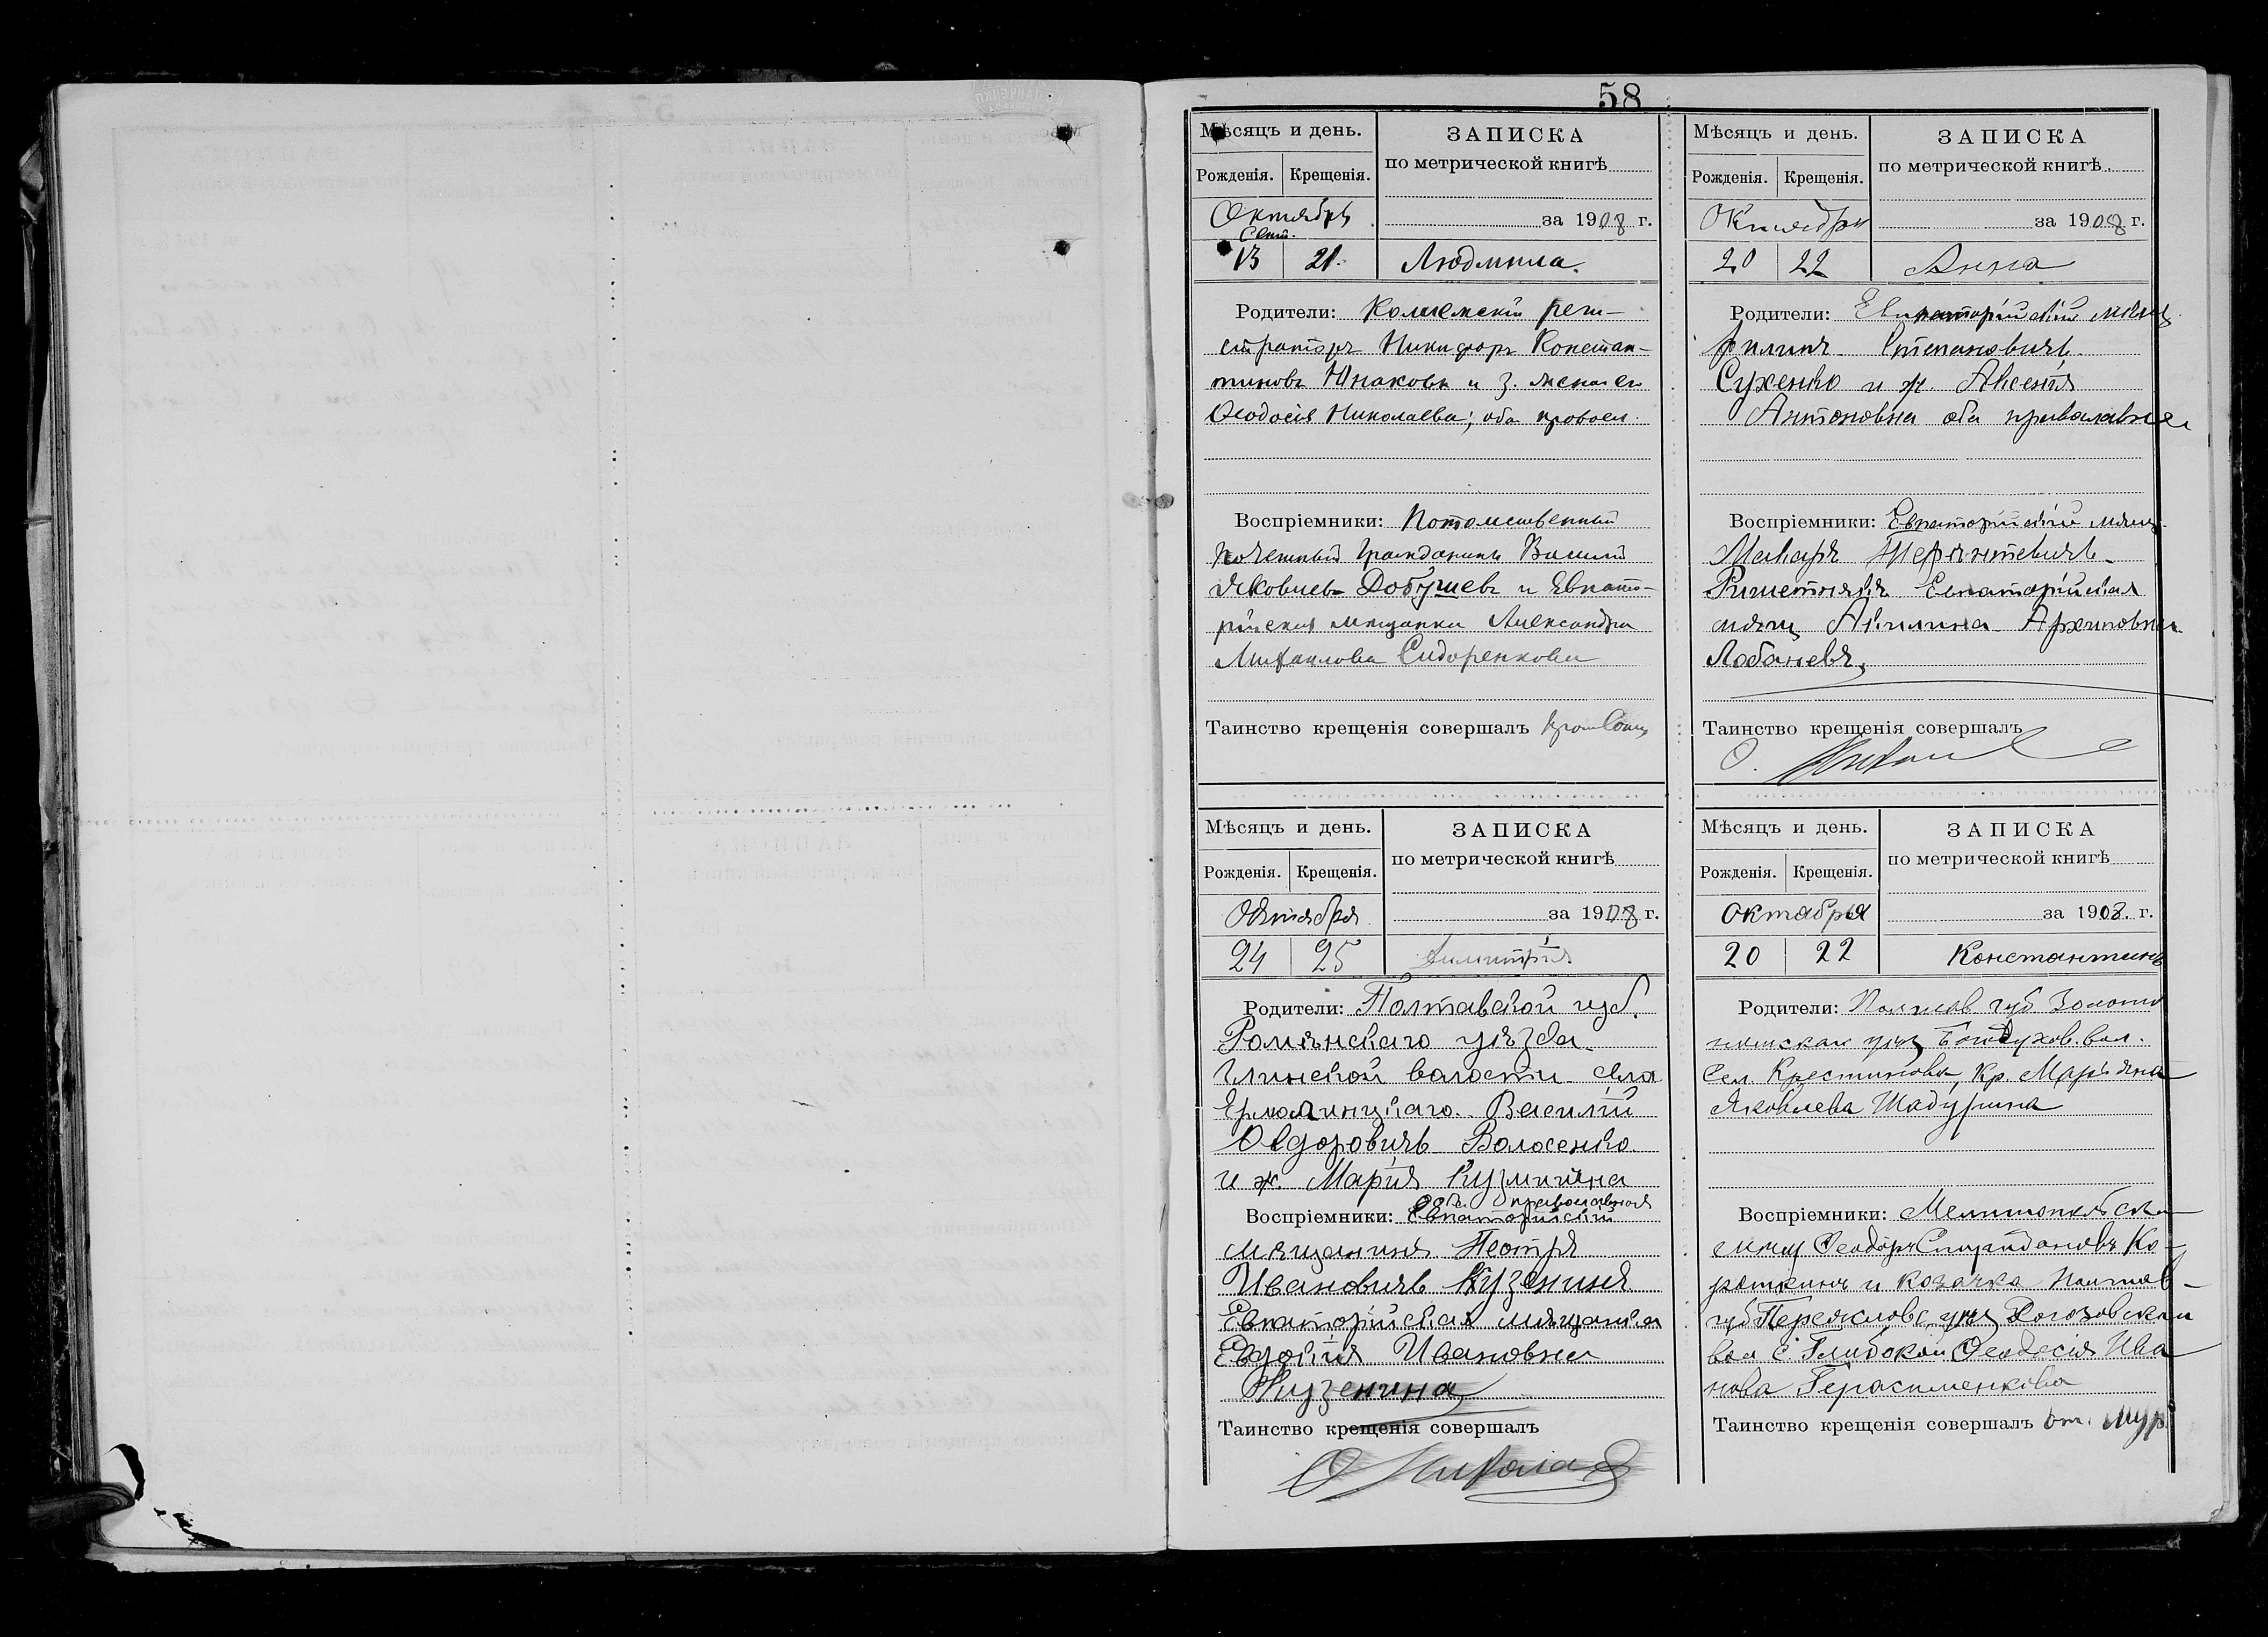 58
Мѣсяцъ и день.
ЗАПИСКА
Рожденія. Крещенія.
по метрической книгѣ
Октябрь
Сент.
за 1908 г.
13 21. Людмила.
Родители: Коллежскій реги-
страторъ Никифоръ Констан-
тиновъ и з. жена его
Ѳеодосія Николаева; оба правосл.
Воспріемники: Потомственный
Почетный Гражданинъ Василій
Яковлевъ Добушевъ и Евпато-
рійская мѣщанка Александра
Михаилова Сидоренкова
Таинство крещенія совершалъ
Мѣсяцъ и день.
ЗАПИСКА
Рожденія. Крещенія.
по метрической книгѣ
Октября
за 1908 г.
20 22 Анна
Родители: Евпаторійскій мѣщ
Филипъ Степановичъ
Сухенко и ж. Аксенія
Антоновна оба православные
Воспріемники: Евпаторійскій мѣщ.
Макаръ
Ришетнякъ Евпаторійская
мѣщ Акилина Архиповна
Лобаневъ,
Таинство крещенія совершалъ
О.
Мѣсяцъ и день.
ЗАПИСКА
Рожденія. Крещенія.
по метрической книгѣ
Октября
за 1908 г.
24 25 Димитрій
Родители: Полтавской губ.
Роменскаго уѣзда
Глинской волости села
Ермолинцкаго Василій
Ѳедоровичъ Волосенко
и ж. Марія Кузминена
оба православная
Воспріемники: Евпаторійскій
мѣщанинъ Петръ
Ивановичъ Кузенинъ
Евпаторійская мѣщанка
Евдокія Ивановна
Кузенина
Таинство крещенія совершалъ
О Николай
Мѣсяцъ и день.
ЗАПИСКА
Рожденія. Крещенія.
по метрической книгѣ
Октября
за 1908. г.
20 22 Константинъ
Родители: Полтав. губ Золото
ношскаго уѣз вол.
Сел. Крестителева, кр. Маріяна
Яковлева Шадурина
Воспріемники: Мелитопольск
мѣщ Ѳеодоръ Спиридоновъ Ко-
роткинъ и козачка Полтав-
губ Переяслов. уѣз Рогозовской
вол с. Глибокой Ѳеодосія Ива
нова Герасименкова
Таинство крещенія совершалъ